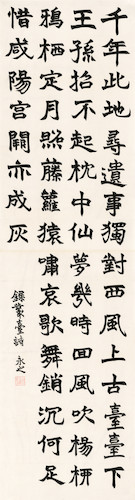 千年此地尋遺事獨對西風上古臺臺下
王孫招不起枕中仙夢幾時回風吹楊柳
鴉栖定月照藤蘿猿嘯哀歌舞銷沉何足
惜咸陽宮闕亦成灰
錄叢臺詩 永之